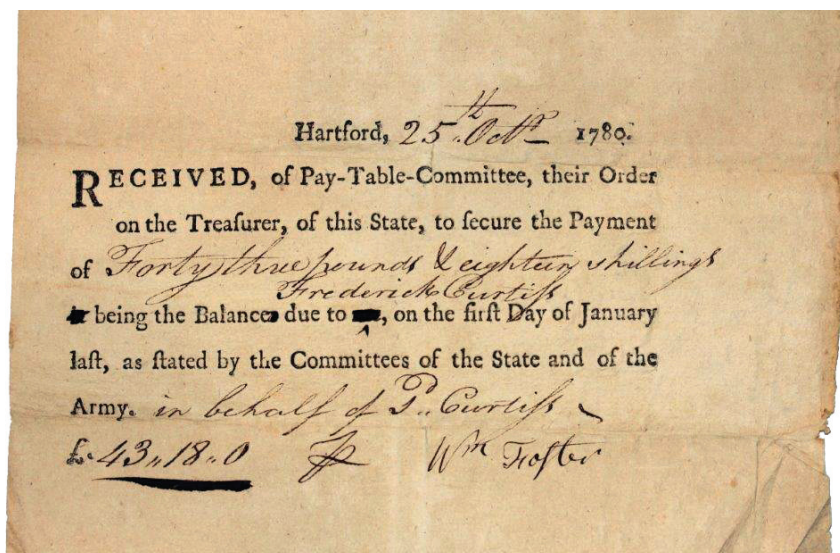 Hartford, 25th Octr 1780.
RECEIVED, of Pay-Table-Committee, their Order
on the Treaſurer, of this State, to ſecure the Payment
of Forty three pounds & eighteen shillings
Frederick Curtiſs
being the Balance due to, on the firſt Day of January
laſt, as ſtated by the Committees of the State and of the
Army. in behalf of Sd. Curtiſs
£. 43,, 18,, 0 Wm Foſter